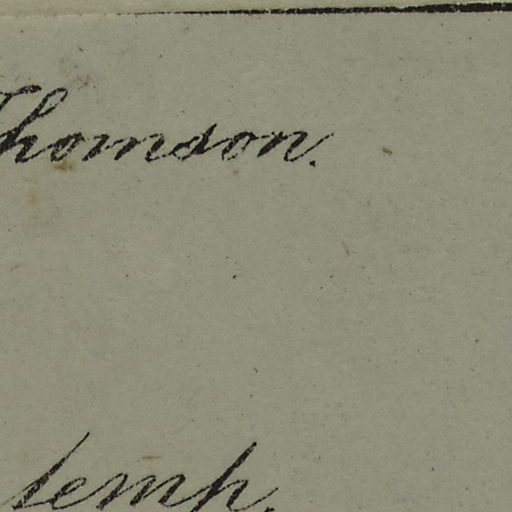 Thomson.
temp.